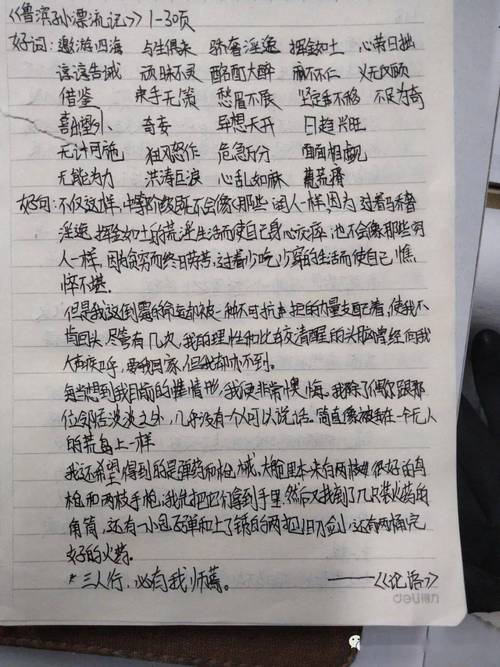 《鲁滨孙漂流记》1-30页
好词：遨游四海 与生俱来 骄奢淫逸 挥金如土 心劳日拙
谆谆告诫 顽昧不灵 酩酊大醉 麻不不仁 义无反顾
借鉴 束手无策 愁眉不展 坚定不移 不足为奇
喜出望外 奇妄 异想天开 日趋兴旺
无计可施 狂风怒作 危急万分 面面相觑
无能为力 洪涛巨浪 心乱如麻
好句：不仅这样，中等阶级既不会像那些阔人一样，因为过着骄奢
淫逸，挥金如土的荒淫生活而使自己身心疲痹，也不会像那些穷
人一样，因为贫穷而终日劳苦，过着少吃少穿的生活而使自己憔
悴不堪。
但是我这倒霉的命运却被一种不可抗拒的力量支配着，使我不
肯回头，尽管有几次，我的理性和比较清醒的头脑曾经向我
大声疾呼，要我回家，但我却办不到。
每当想到我目前的情形，我便非常懊悔。我除了偶尔跟那
位邻居谈谈之外，几乎没有一个人可以说话。简直像被丢在一个无人
的荒岛上一样
我还希望得到的是弹药和枪械，大舱里本来有两枝很好的鸟
枪和两枝手枪，我先把它们拿到手里，然后又找到了几只装火药的
角筒，还有一小包子弹和上了锈的两把旧刀剑，还有两桶完
好的火药。
*三人行，必有我师焉。 ——《论语》
deli得力